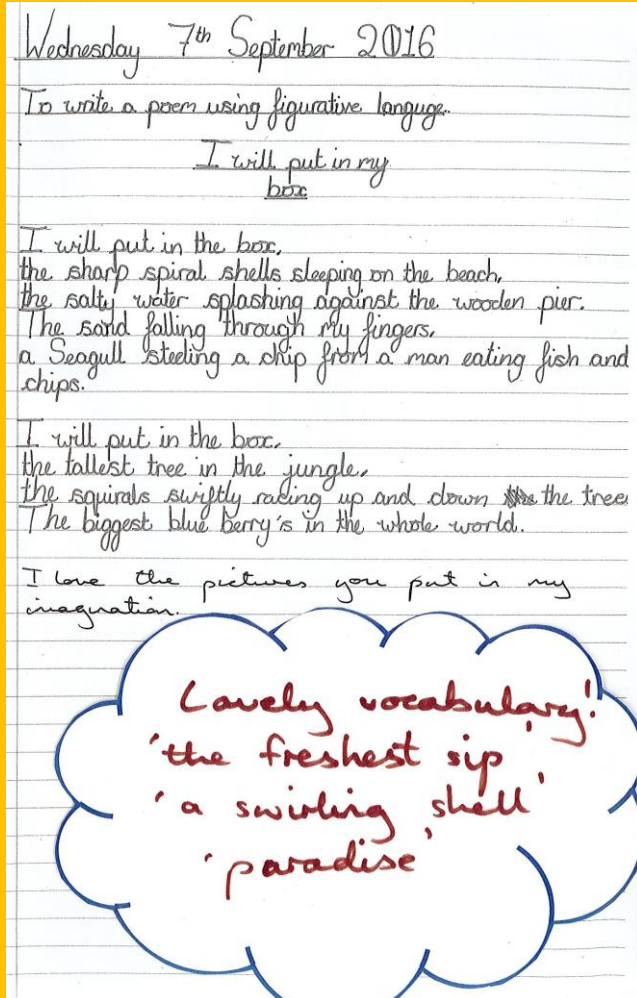 Wednesday 7th September 2016
To write a poem using figurative languge.
I will put in my
box
I will put in the box,
the sharp spiral shells sleeping on the beach,
the salty water splashing against the wooden pier.
The sand falling through my fingers,
a Seagull steeling a chip from a man eating fish and
chips.
I will put in the box,
the tallest tree in the jungle,
the squirals swiftly racing up and down the tree
The biggest blue berry's in the whole world.
I love the pictures you put in my
imagination.
Lovely vocabulary!
'the freshest sip
'a swirling shell'
'paradise'